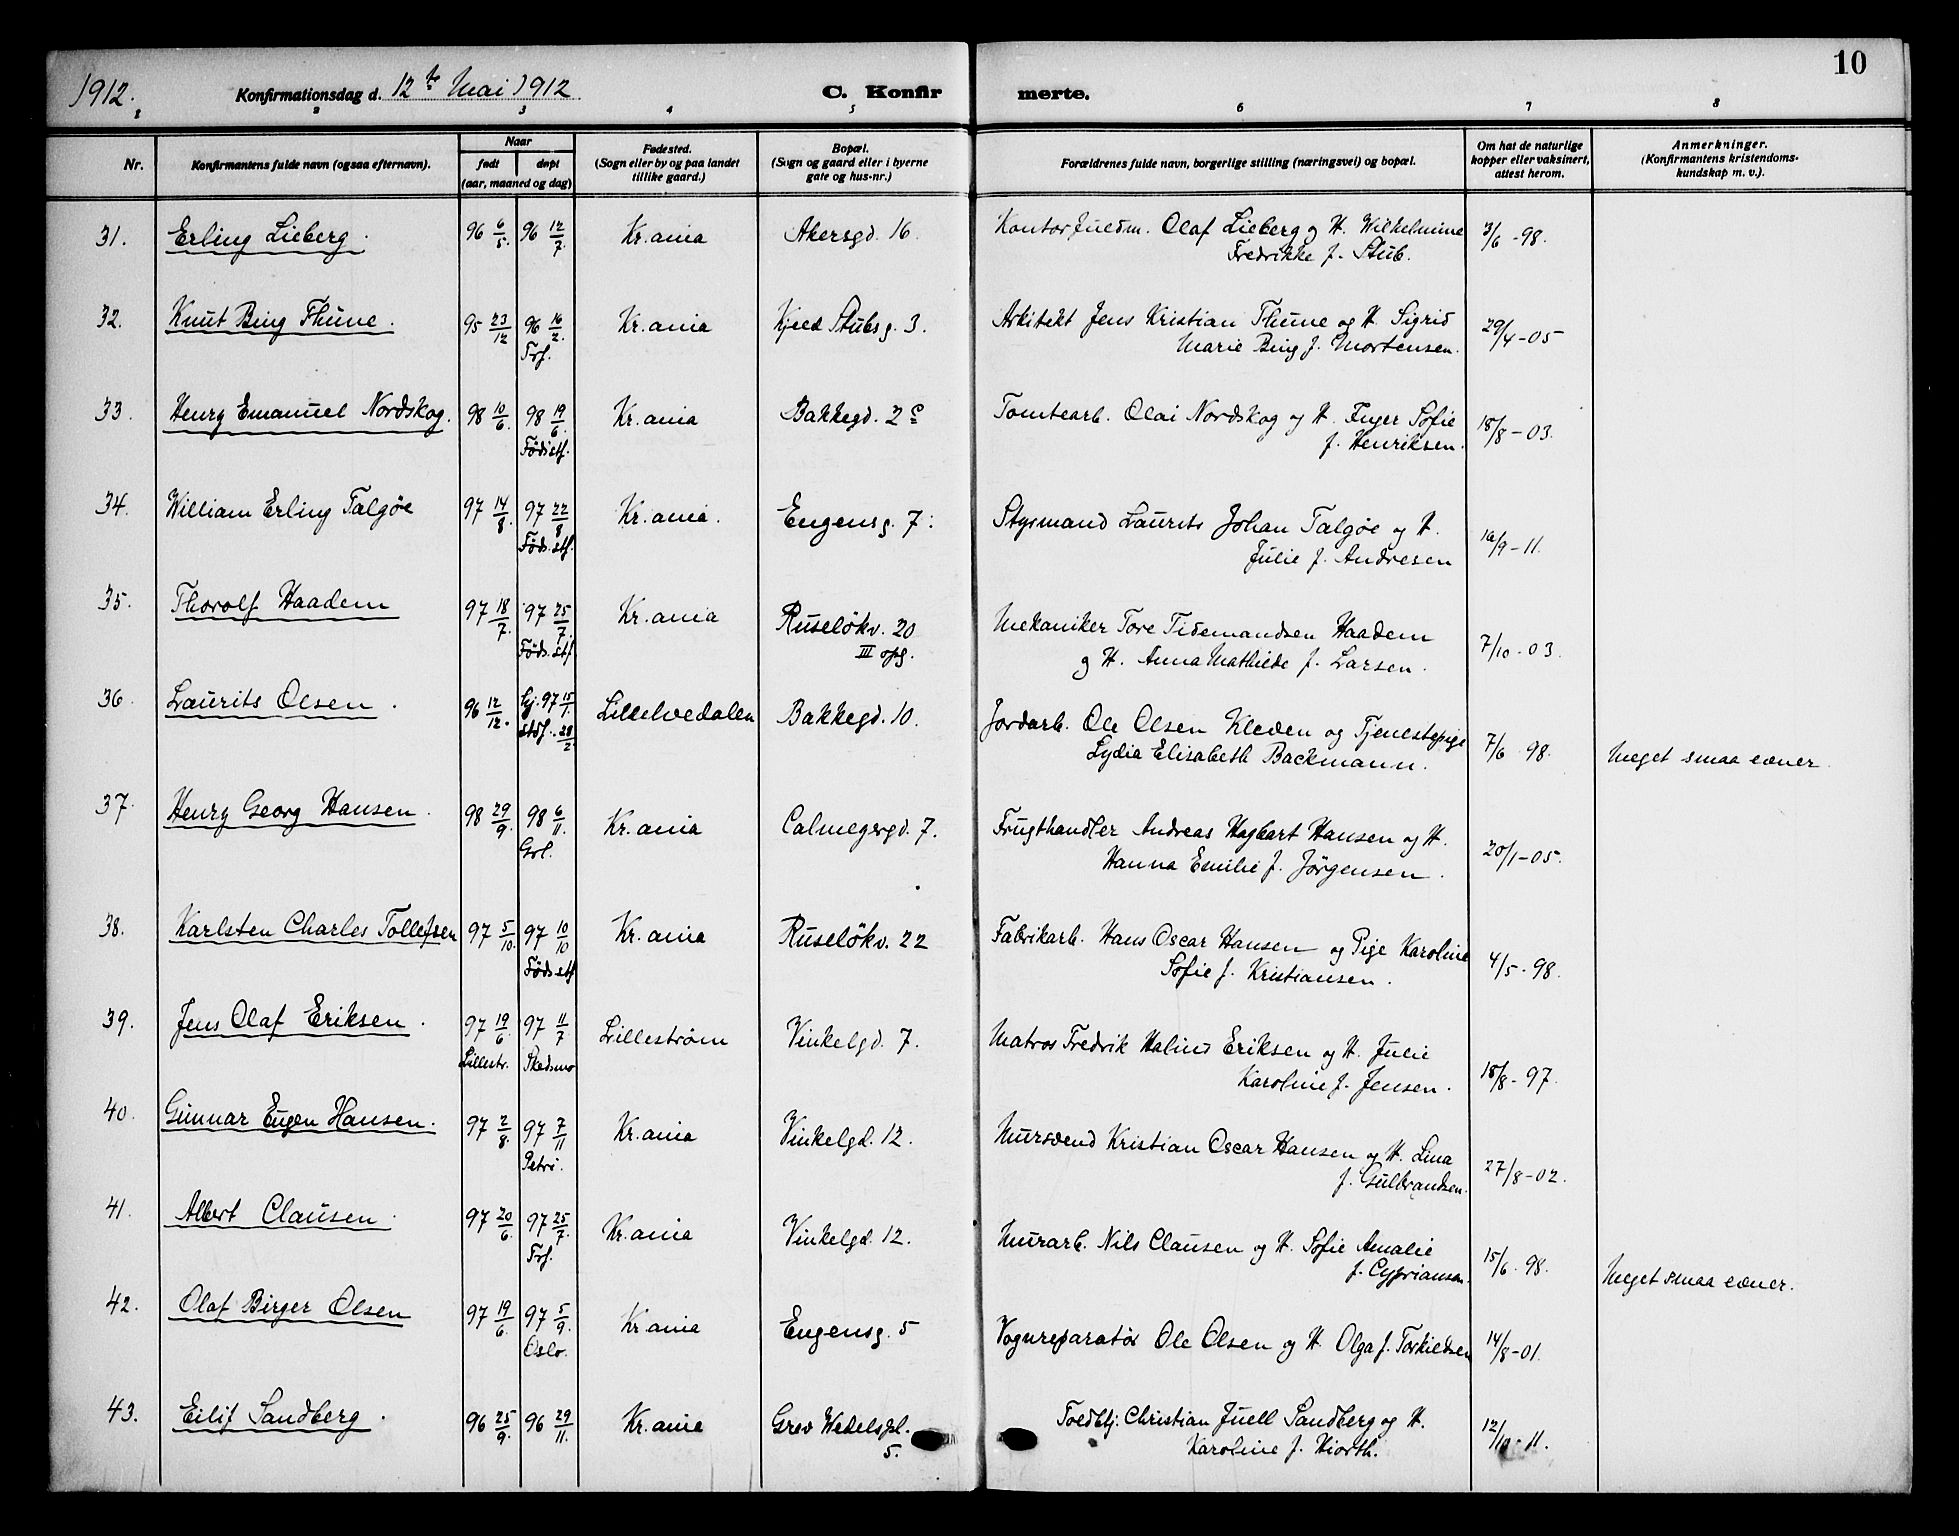 1912. Konfirmationsdag d. 12te Mai 1912 C. Konfir merte. 10
1 2 3 4 5 6 7 8
Nr. Konfirmantens fulde navn (ogsaa efternavn). Naar født døpt (aar, maaned og dag) Fødested. (Sogn eller by og paa landet tillike gaard.) Bopæl. (Sogn og gaard eller i byerne gate og hus-nr.) Forældrenes fulde navn, borgerlige stilling (næringsvei) og bopæl. Om hat de naturlige kopper eller vaksinert, attest herom. Anmerkninger. (Konfirmantens kristendoms-kundskap m. v.).
31. Erling Lieberg. 96 6/5. 96 12/7. Kr.ania Akersgd. 16. Kontorfuldm. Olaf Lieberg og H. Wilhelmine 3/6 -98.
Fredrikke f. Stub.
32. Knut Bing Thune. 95 23/12 96 16/2. Kr.ania Kjeld Stubsg. 3. Arkitekt Jens Kristian Thune og H. Sigrid 29/4-05
Trf. Marie Bing f. Mortensen.
33. Henry Emanuel Nordskog. 98 10/6. 98 19/6. Kr.ania Bakkegd. 2c Tomtearb. Olai Nordskog og H. Inger Sofie 18/8-03.
Föds stf. f. Henriksen.
34. William Erling Talgøe 97 14/8. 97 22/8 Kr.ania. Eugensg. 7. Styrmand Laurits Johan Talgøe og H. 19/9-11.
Föds. stf. Julie f. Andresen
35. Thorolf Haadem 97 18/7. 97 25/7. Kr.ania Ruseløkv. 20 Mekaniker Tore Tidemandsen Haadem 7/10-03.
Föds. stf III opg. og H. Anna Mathilde f. Larsen.
36. Laurits Olsen. 96 12/12. hj. 97 15/1. Lilleelvedalen Bakkegd. 10. Jordarb. Ole Olsen Kleven og Tjenestepige 7/6 98. Meget smaa evner.
stdf. 28/2. Lydia Elisabeth Backmann.
37. Henry Georg Hansen. 98 29/9. 98 6/11. Kr.ania Calmeyergd. 7. Frugthandler Andreas Hagbart Hansen og H. 20/1-05.
Grl. Hanna Emilie f. Jörgensen.
38. Karlsten Charles Tollefsen 97 5/10. 97 10/10 Kr.ania Ruseløkv. 22 Fabrikarb. Hans Oscar Hansen og Pige Karoline 4/5-98.
Föds stf Sofie f. Kristiansen.
39. Jens Olaf Eriksen. 97 19/6. 97 11/7 Lillestrøm Vinkelgd. 7. Matros Fredrik Halins Eriksen og H. Julie 18/8-97.
Lillestr. Skedsmo Karoline f. Jensen.
40. Gunnar Eugen Hansen. 97 2/8. 97 7/11 Kr.ania Vinkelgd. 12. Mursvend Kristian Oscar Hansen og H. Lina 27/8-02.
Petri. f. Gulbrandsen.
41. Albert Clausen. 97 20/6. 97 25/7. Kr.ania Vinkelgd. 12. Murarb. Nils Clausen og H. Sofie Amalie 15/6-98. Meget smaa evner.
Trf. f. Cypriansen.
42. Olaf Birger Olsen 97 19/6. 97 5/9. Kr.ania Eugensg. 5 Vognreparatör Ole Olsen og H. Olga f. Torkildsen 14/8-01.
Oslo.
43. Eilif Sandberg. 96 25/9. 96 29/11. Kr.ania Grev Wedelspl. 5. Toldbtj. Christian Juell Sandberg og H. 12/10-11.
Karoline f. Hiorth.